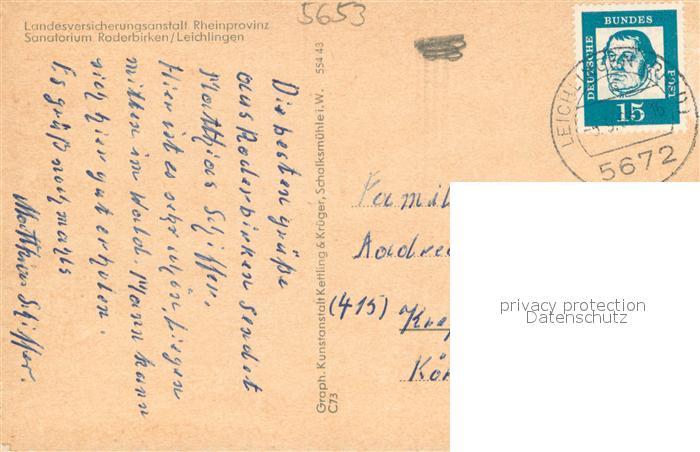 5653
Landesversicherungsanstalt Rheinprovinz
Sanatorium Roderbirken/Leichlingen
Die besten grüße
aus Roderbirken sendet
Matthias Schiffer.
Hier ist es sehr schön, liegen
mitten im Wald. Mann kann
sich hier gut erholen.
Es grüßt nochmals
Matthias Schiffer.
Graph. Kunstanstalt Kettling & Krüger, Schalksmühle i. W. 554 43
C73
DEUTSCHE BUNDES POST
15
LEICHL
5672
Famil
Aadre
(415)
Kö
privacy protection
Datenschutz